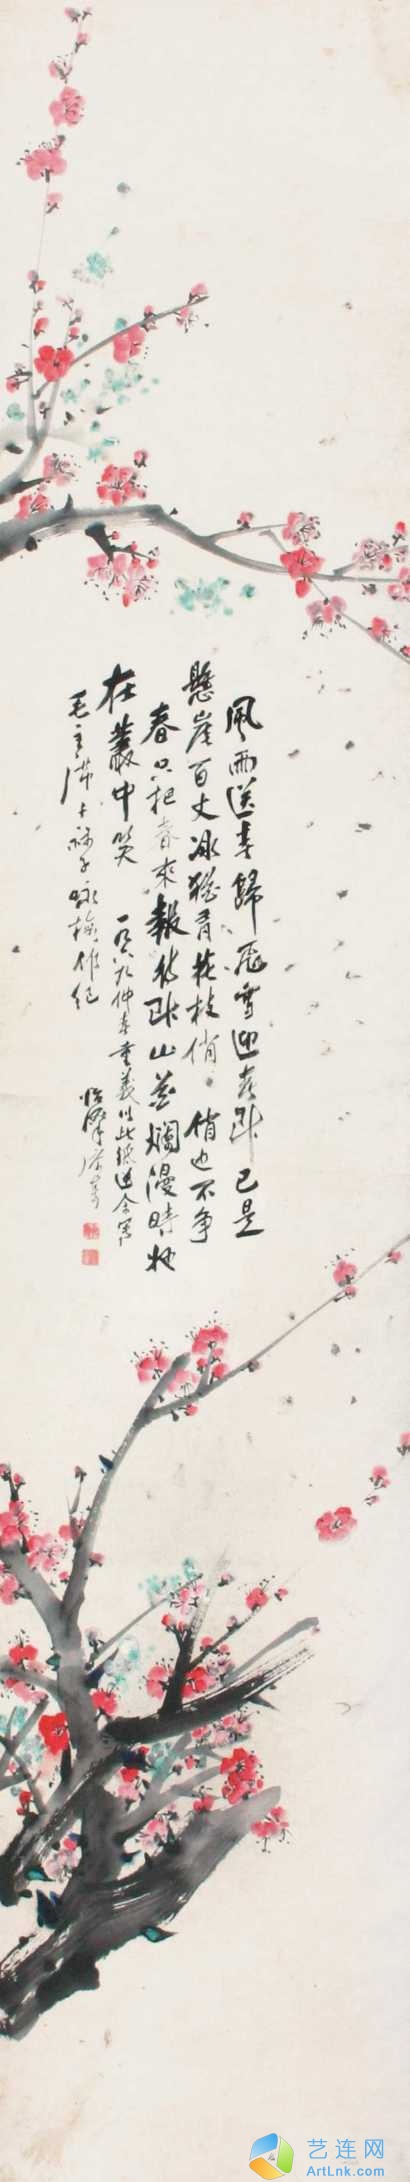 風雨送春歸飛雪迎春到已是
懸崖百丈冰猶有花枝俏 俏也不争
春只把春來報待到山花爛漫時她
在叢中笑 仲春重義以此紙
毛主席卜算子咏梅
艺连网
ArtLnk.com